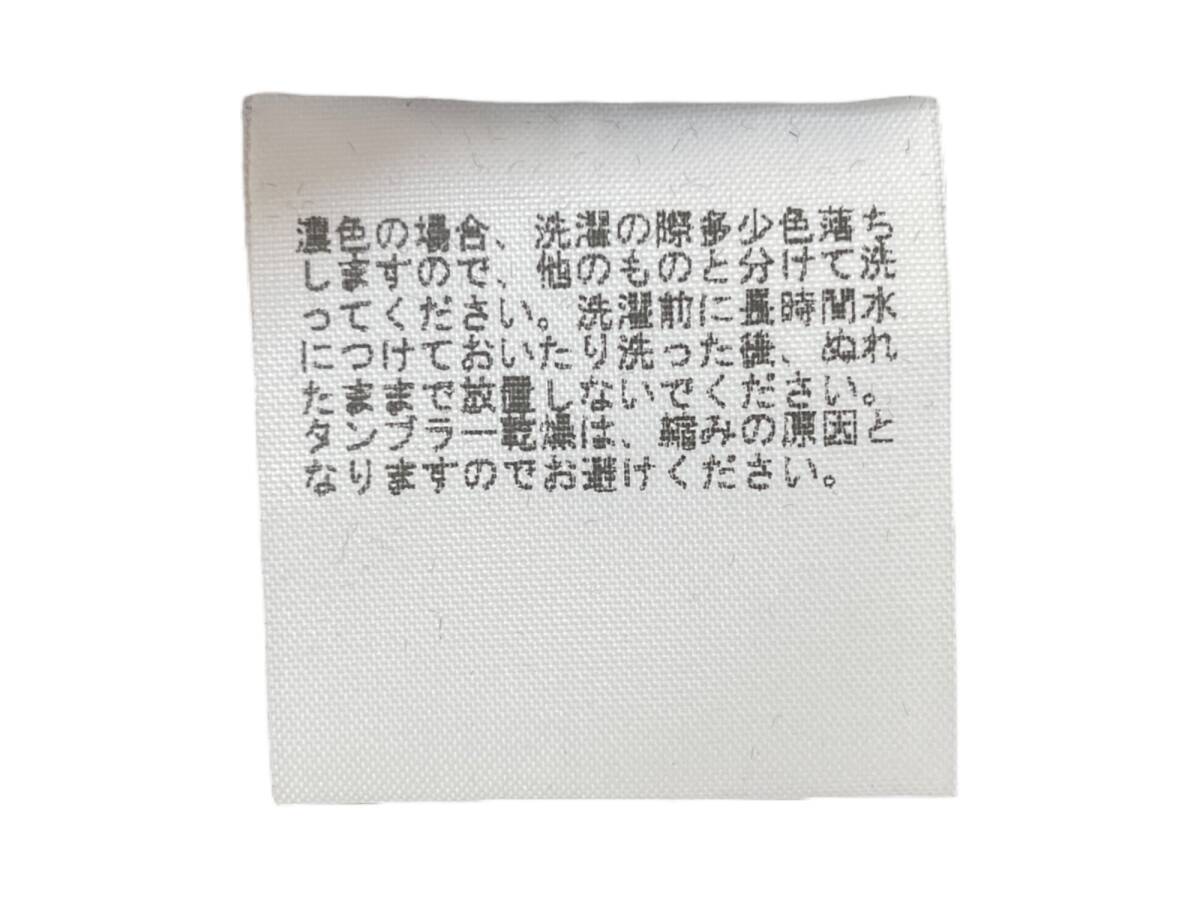 濃色の場合、洗濯の際多少色落ち
しますので、他のものと分けて洗
ってください。洗濯前に長時間水
につけておいたり洗った後、ぬれ
たままで放置しないでください。
タンブラー乾燥は、縮みの原因と
なりますのでお避けください。